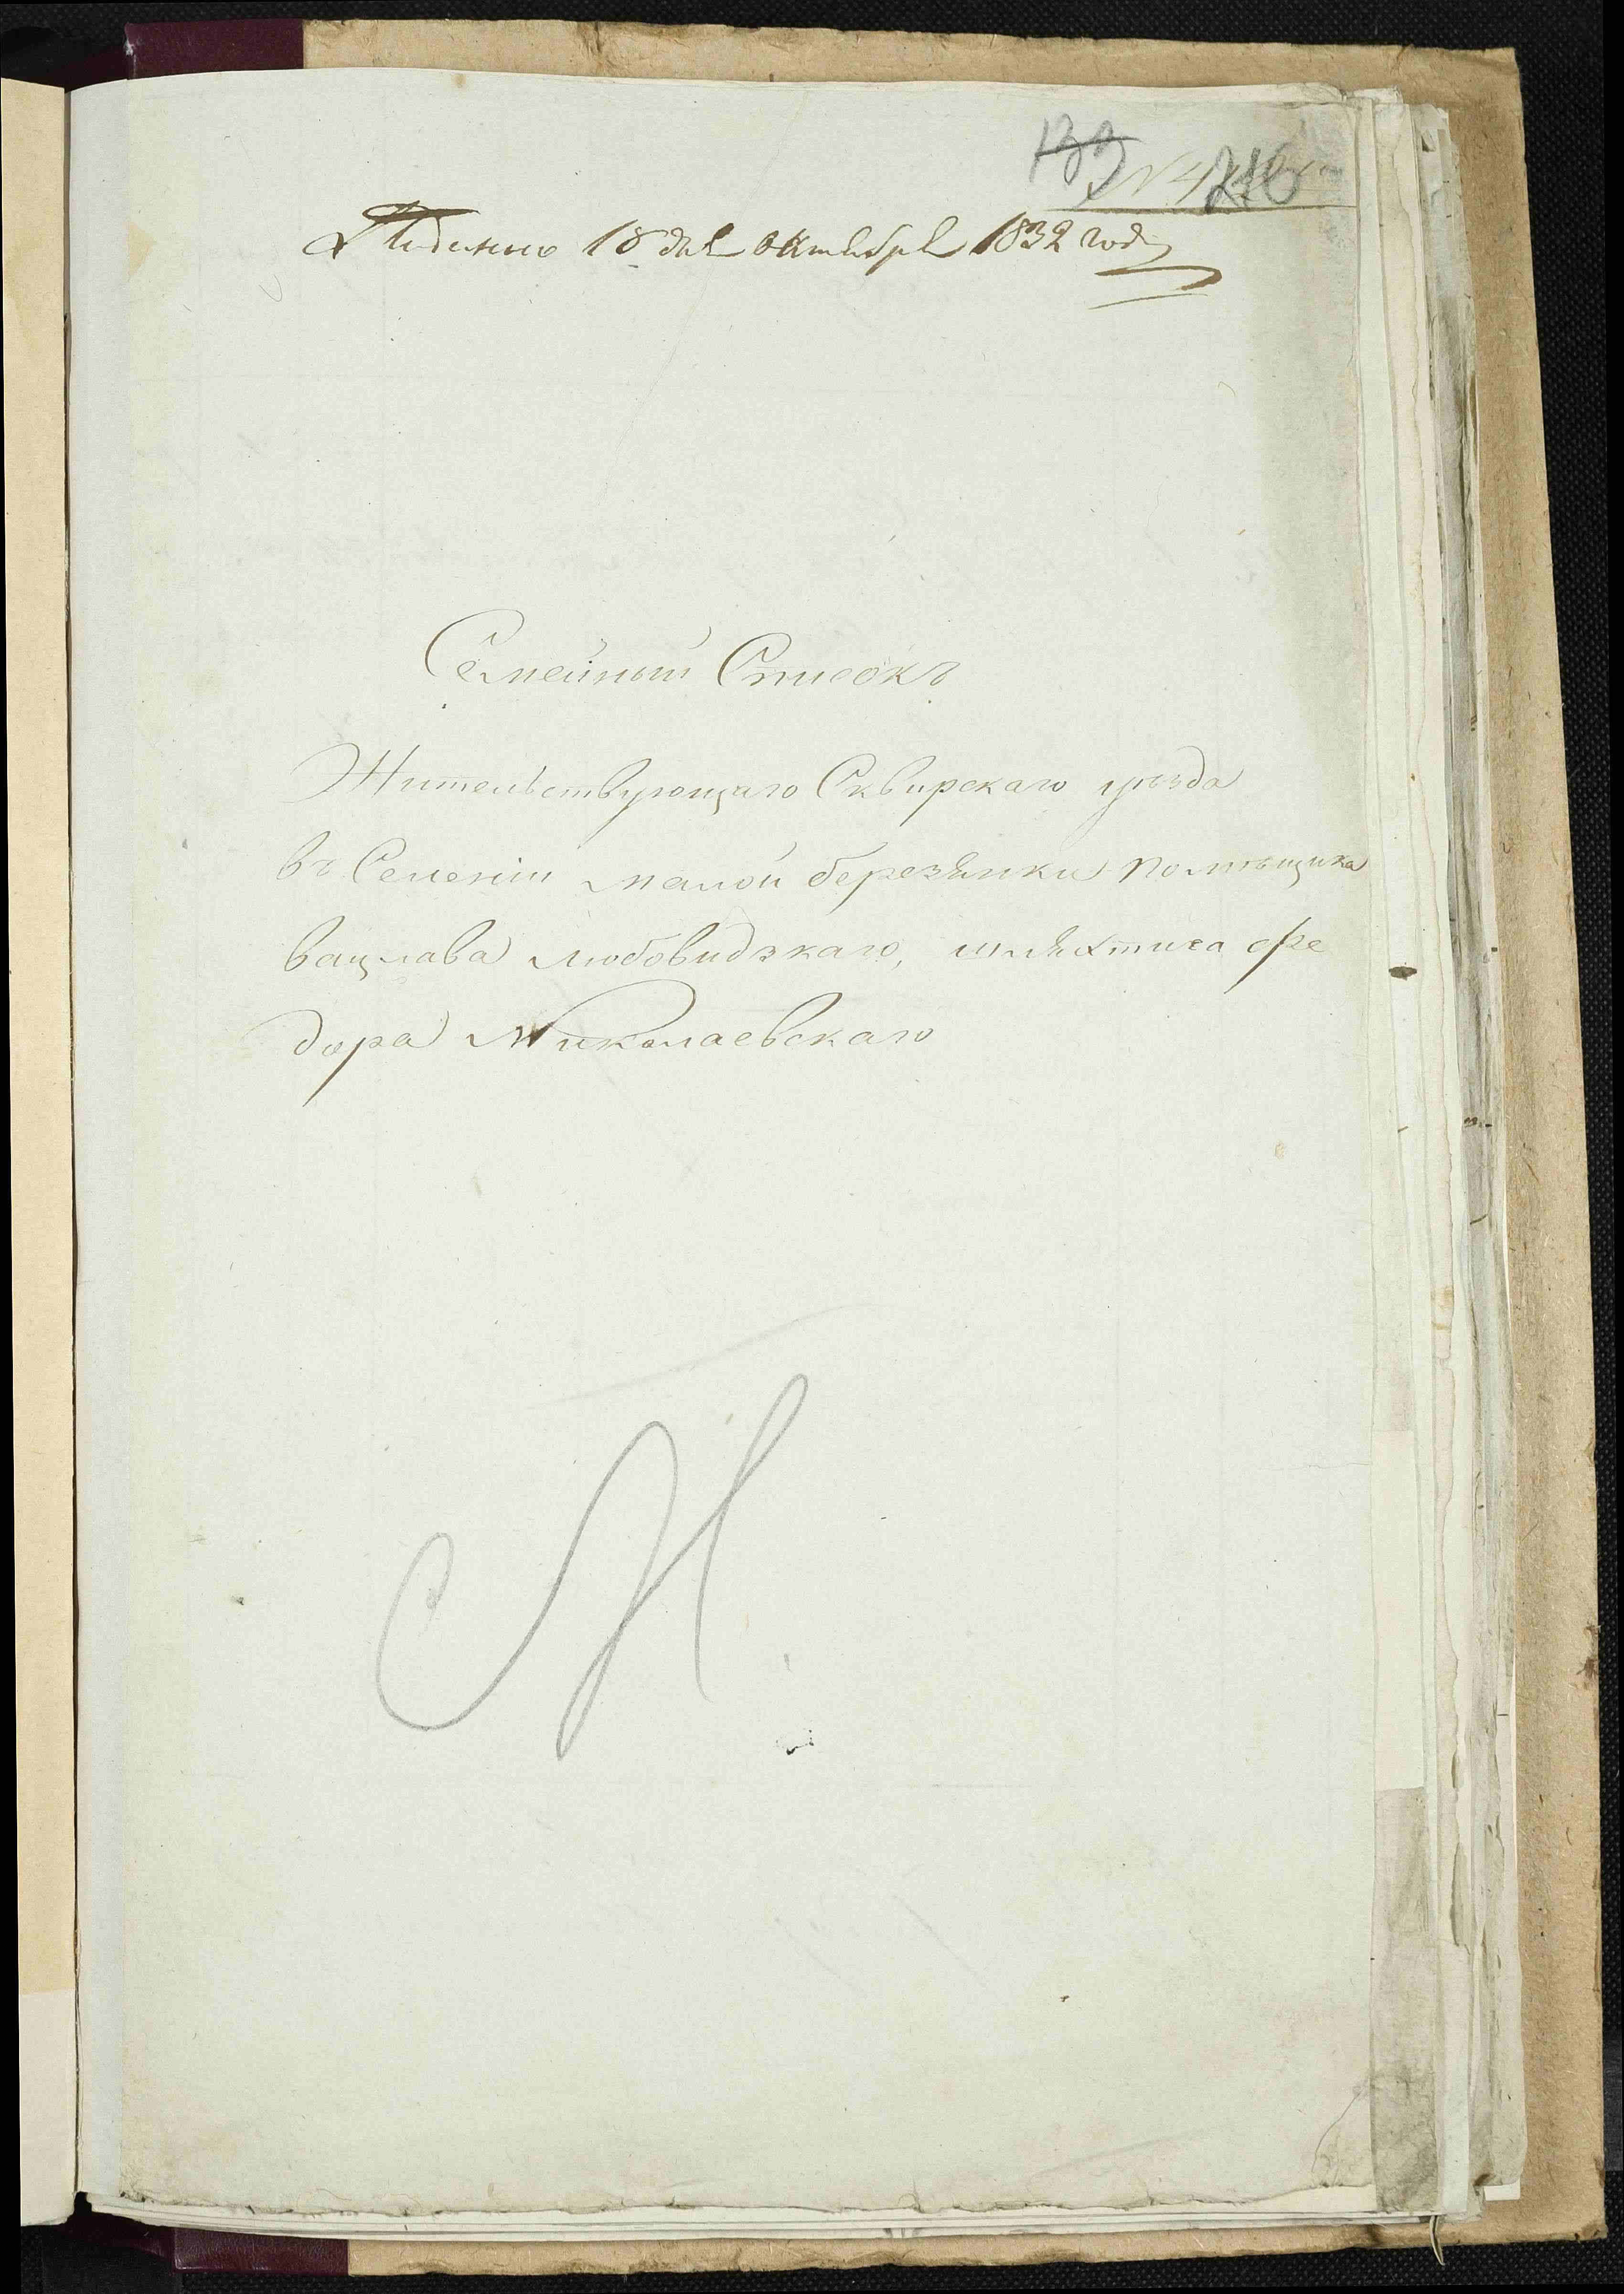 139
216
Подано 18 дня октября 1832 года
Семейный Списокъ
Жительствующаго Сквирскаго уѣзда
въ Селеніи малой березянки помѣщика
вацлава любовидзкаго, шляхтича Фе
дора Николаевскаго
Н.